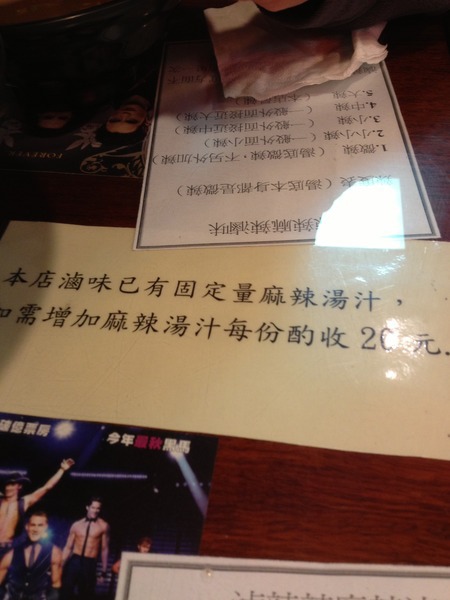 辣麻辣滷味
(湯底本身都是微辣)
1. 微辣 (湯底微辣,不另外加辣)
2. 小小辣 (一般外面小辣)
3. 小辣 (一般外面接近中辣)
4. 中辣 (一般外面接近大辣)
5. 大辣
FOREVER
本店滷味已有固定量麻辣湯汁,
如需增加麻辣湯汁每份酌收 20 元
億票房
今年最秋黑馬